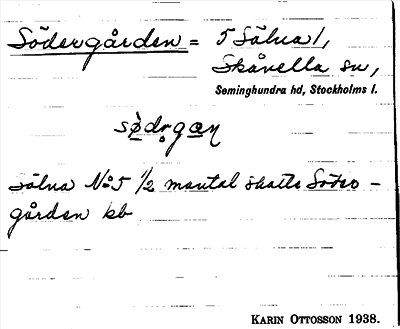 Södergården = 5 Sälna 1,
Skånella sn,
Seminghundra hd, Stockholms l.
södrgan
Sälna No 5 1/2 mantal skatte Söder-
gården kb
KARIN OTTOSSON 1938.